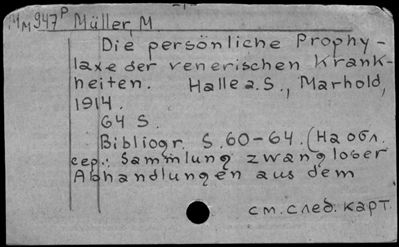 MM947P Müller, M
Die persönliche Prophy-
laxe der venerischen Krank-
heiten. Halle a.S., Marhold,
1914.
64 S.
Bibliogr. S. 60-64. (На обл.
сер.: Sammlung zwangloser
Abhandlungen aus dem
см. след. карт.